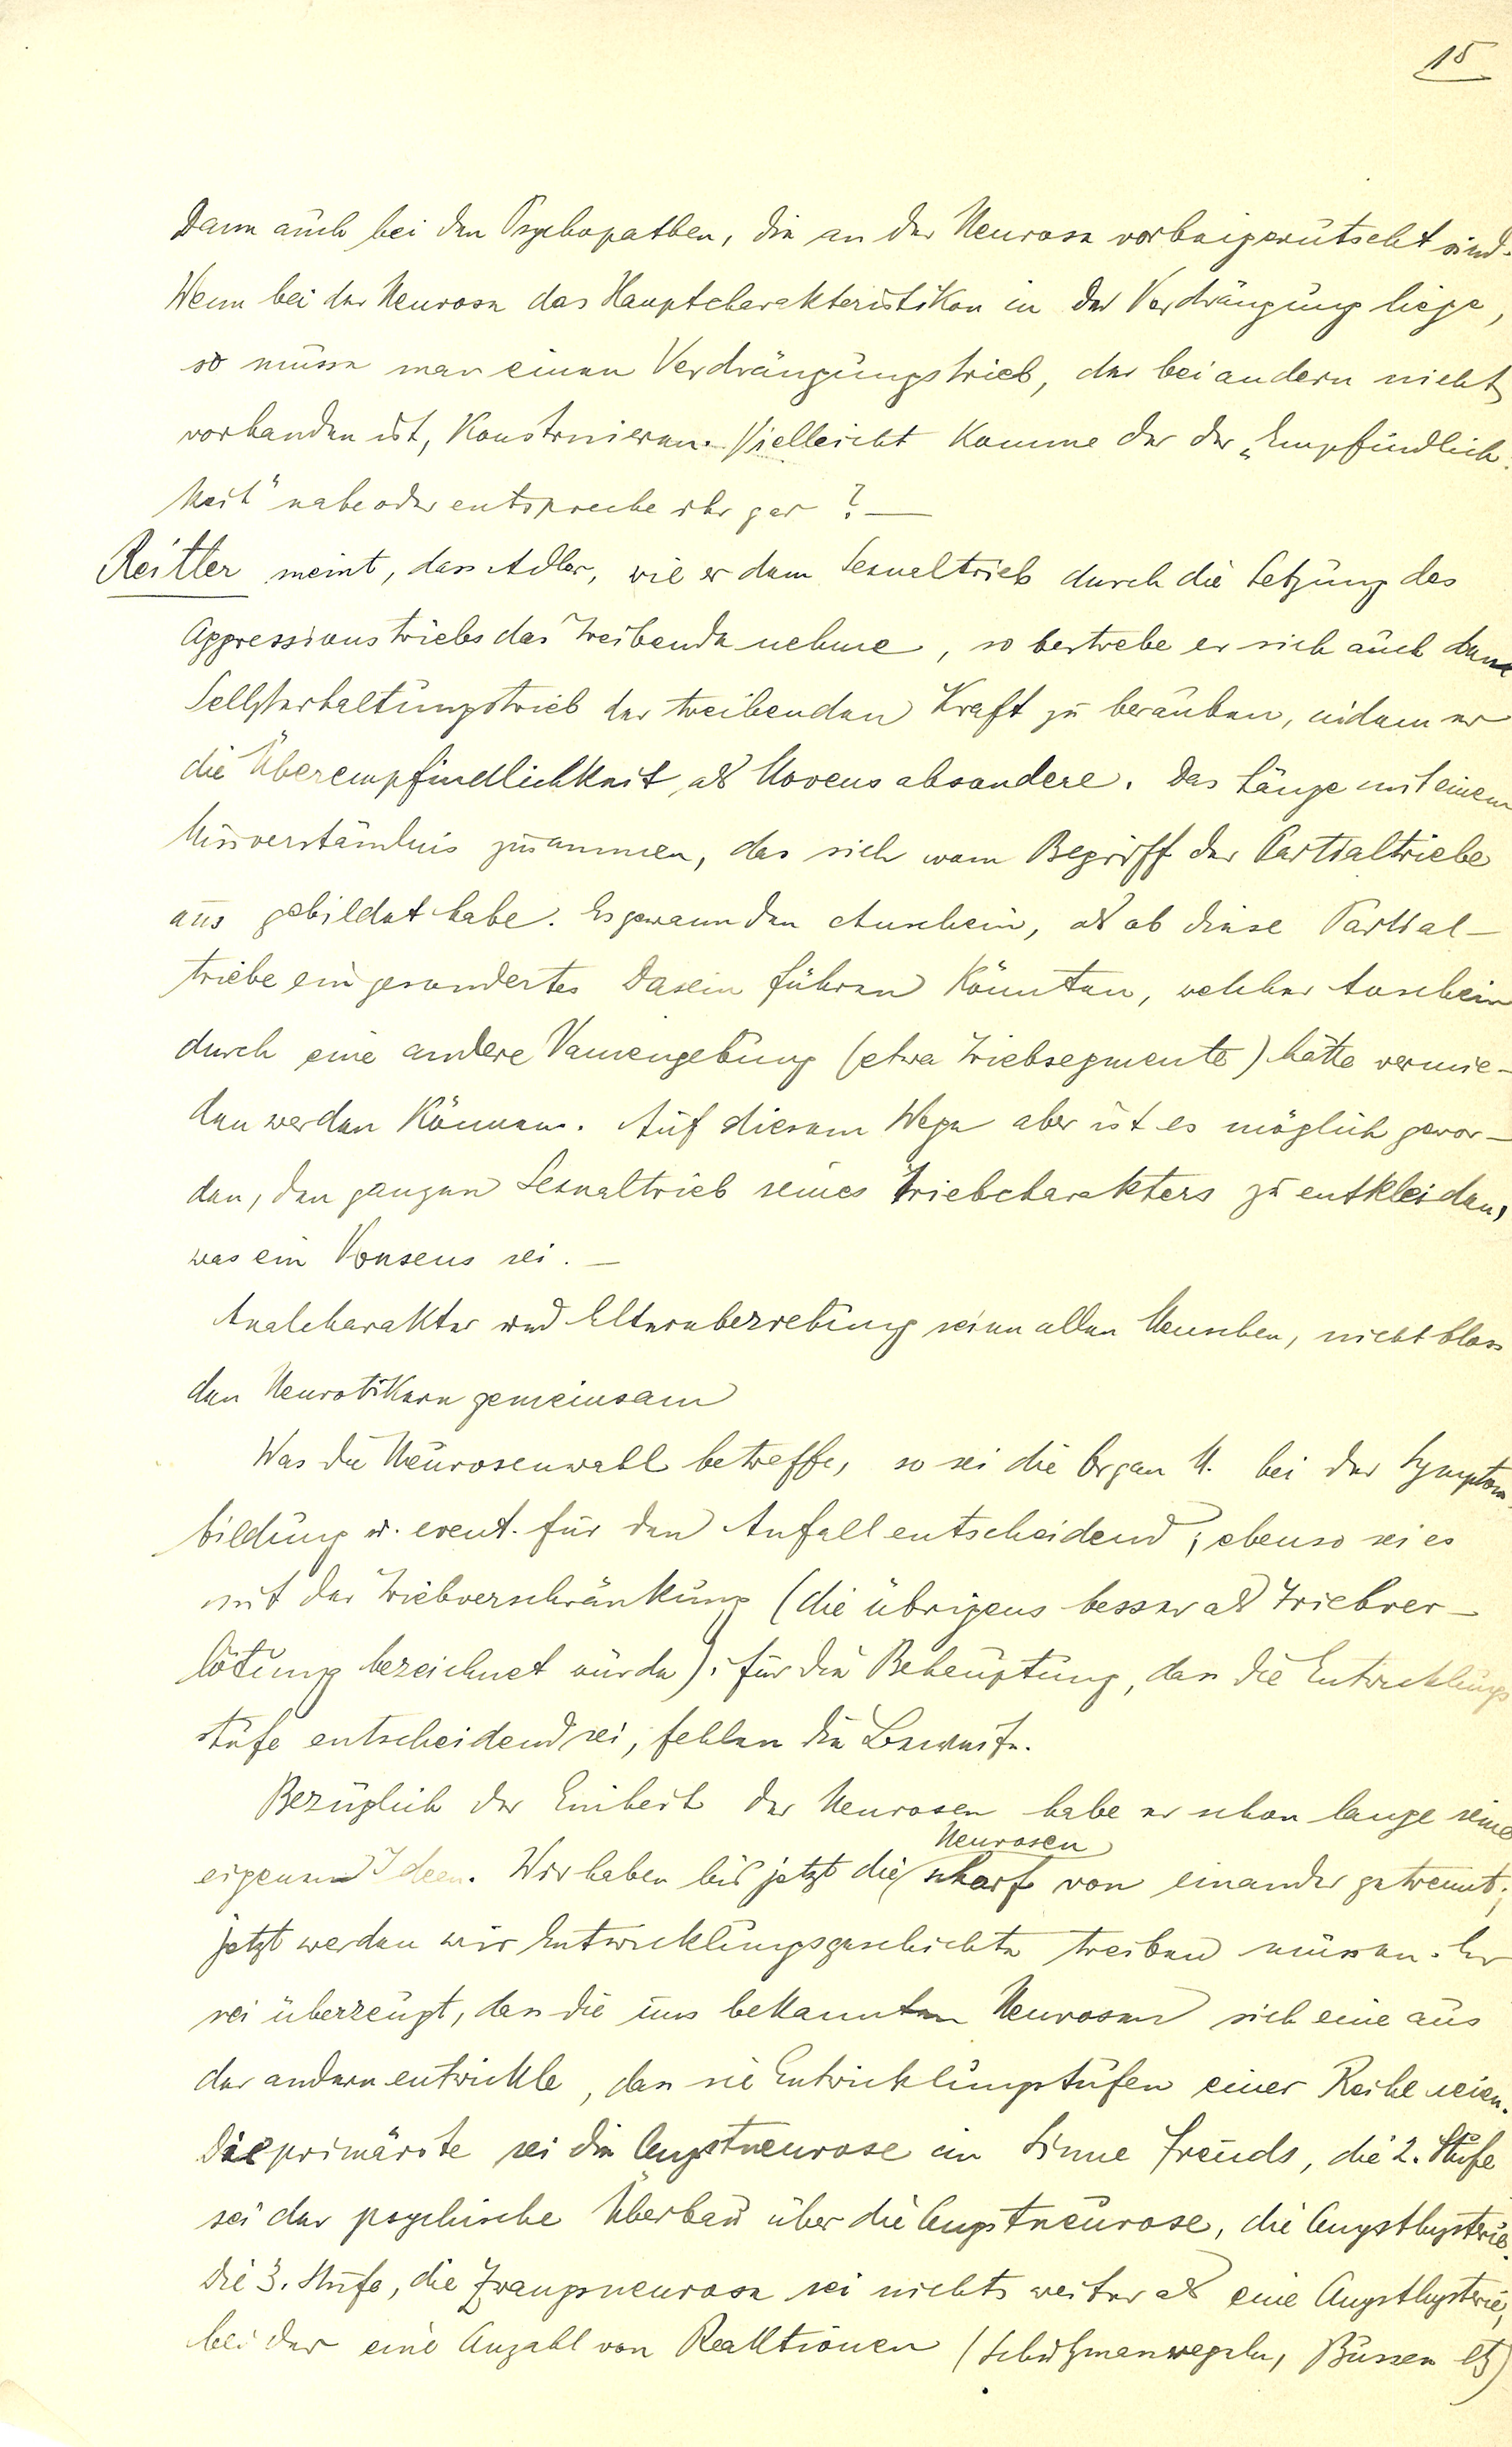 15
Dann auch bei den Psychopathen, die an der Neurose vorbeigerutscht sind.
Wenn bei der Neurose das Hauptcharakteristikon in der Verdrängung liege,
so müsse man einen Verdrängungstrieb, der bei andern nicht
vorhanden ist, Konstruieren. Vielleicht Komme der der „Empfindlich-
Keit" nahe oder entspreche ihr gar ? —
Reitler meint, dass Adler, wie er dem Sexualtrieb durch die Setzung des
Aggressionstriebs das Treibende nehme, so bestrebe er sich auch dem
Selbsterhaltungstrieb der treibenden Kraft zu berauben, indem er
die Überempfindlichkeit, als Movens absondere. Das hänge mit einem
Missverständnis zusammen, das sich vom Begriff der Partialtriebe
aus gebildet habe. Es gewann den Anschein, als ob diese Partial-
triebe ein gesondertes Dasein führen Könnten, welcher Anschein
durch eine andere Namengebung (etwa Triebsegmente) hätte vermie-
den werden Können. Auf diesem Wege aber ist es möglich gewor-
den, den ganzen Sexualtrieb seines Triebcharakters zu entkleiden,
was ein Nonsens sei. —
Analcharakter und Elternberretung seien allen Menschen, nicht bloss
den Neurotikern gemeinsam
Was die Neurosenwahl betreffe, so sei die Organ M. bei der Symptom-
bildung u. event. für den Anfall entscheidend; ebenso sei es
mit der Triebverschränkung (die übrigens besser als Triebver-
lötung bezeichnet würde); für die Behauptung, dass die Entwicklungs
stufe entscheidend sei, fehlen die Beweise.
Bezüglich der Einheit der Neurosen habe er schon lange seine
eigenen Ideen. Wir haben bis jetzt die Neurosen scharf von einander getrennt;
jetzt werden wir Entwicklungsgeschichte treiben müssen. Er
sei überzeugt, dass die uns bekannten Neurosen sich eine aus
der andern entwickle, dass sie Entwicklungstufen einer Reihe seien.
Die primärste sei die Angstneurose im Sinne Freuds, die 2. Stufe
sei der psychische Überbau über die Angstneurose, die Angsthysterie.
Die 3. Stufe, die Zwangsneurose sei nichts weiter als eine Angsthysterie,
bei der eine Anzahl von Reaktionen (Schutzmassregeln, Bussen etz)